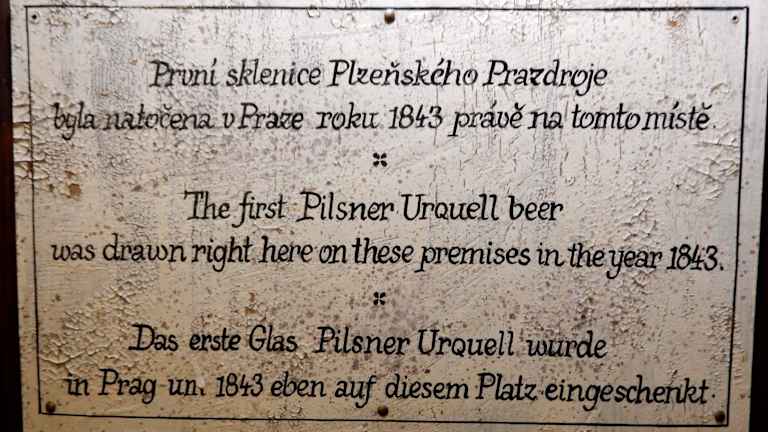 První sklenice Plzeňského Prazdroje
byla natočena v Praze roku 1843 právě na tomto místě.
The first Pilsner Urquell beer
was drawn right here on these premises in the year 1843.
Das erste Glas Pilsner Urquell wurde
in Prag um. 1843 eben auf diesem Platz eingeschenkt.